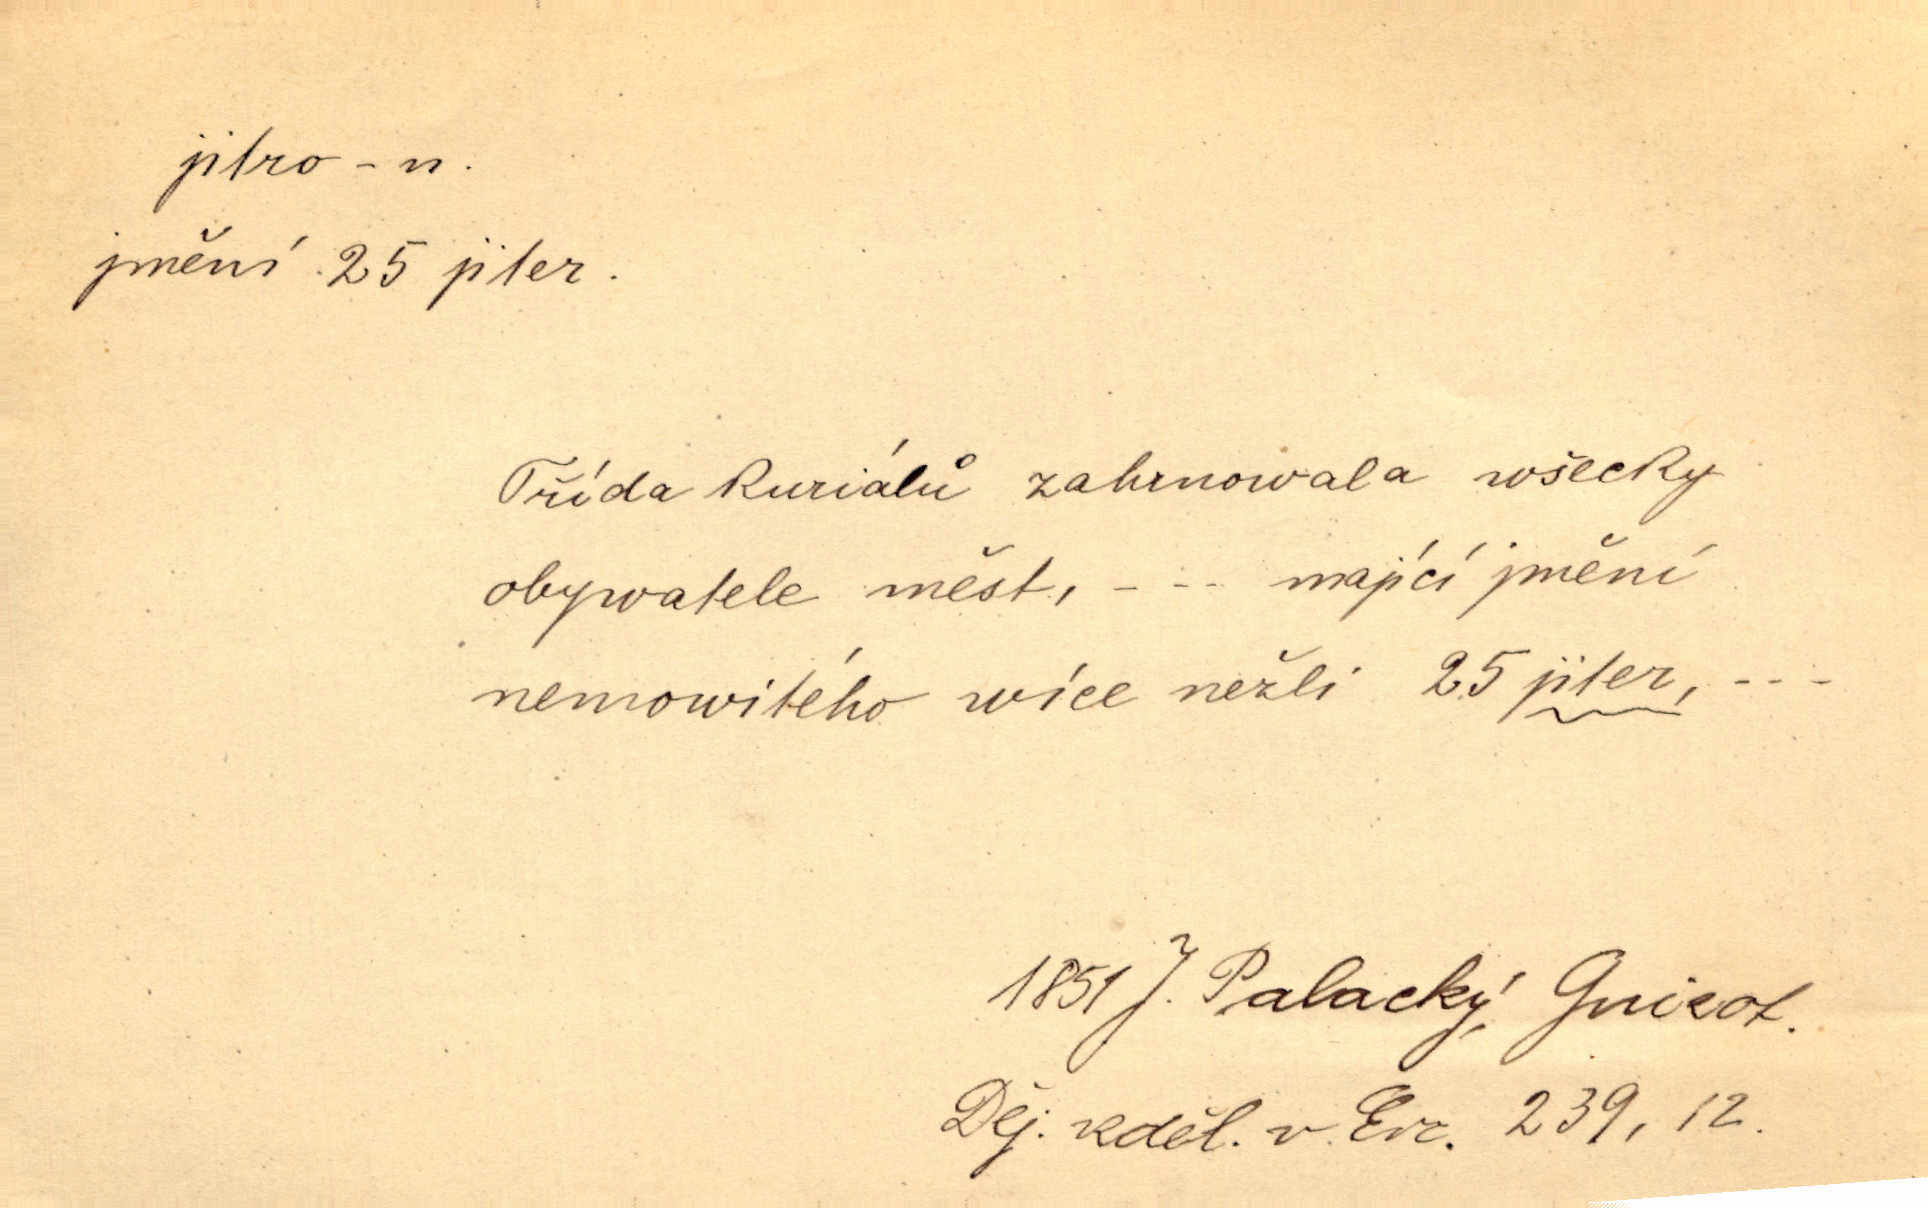 jitro - n.
jmění 25 jiter.
Třída kuriálů zahrnowala wšecky
obywatele měst, - - - mající jmění
nemowitého wíce nežli 25 jiter, - - -
1851 J. Palacký, Guizot.
Děj. vzděl. v Evr. 239, 12.